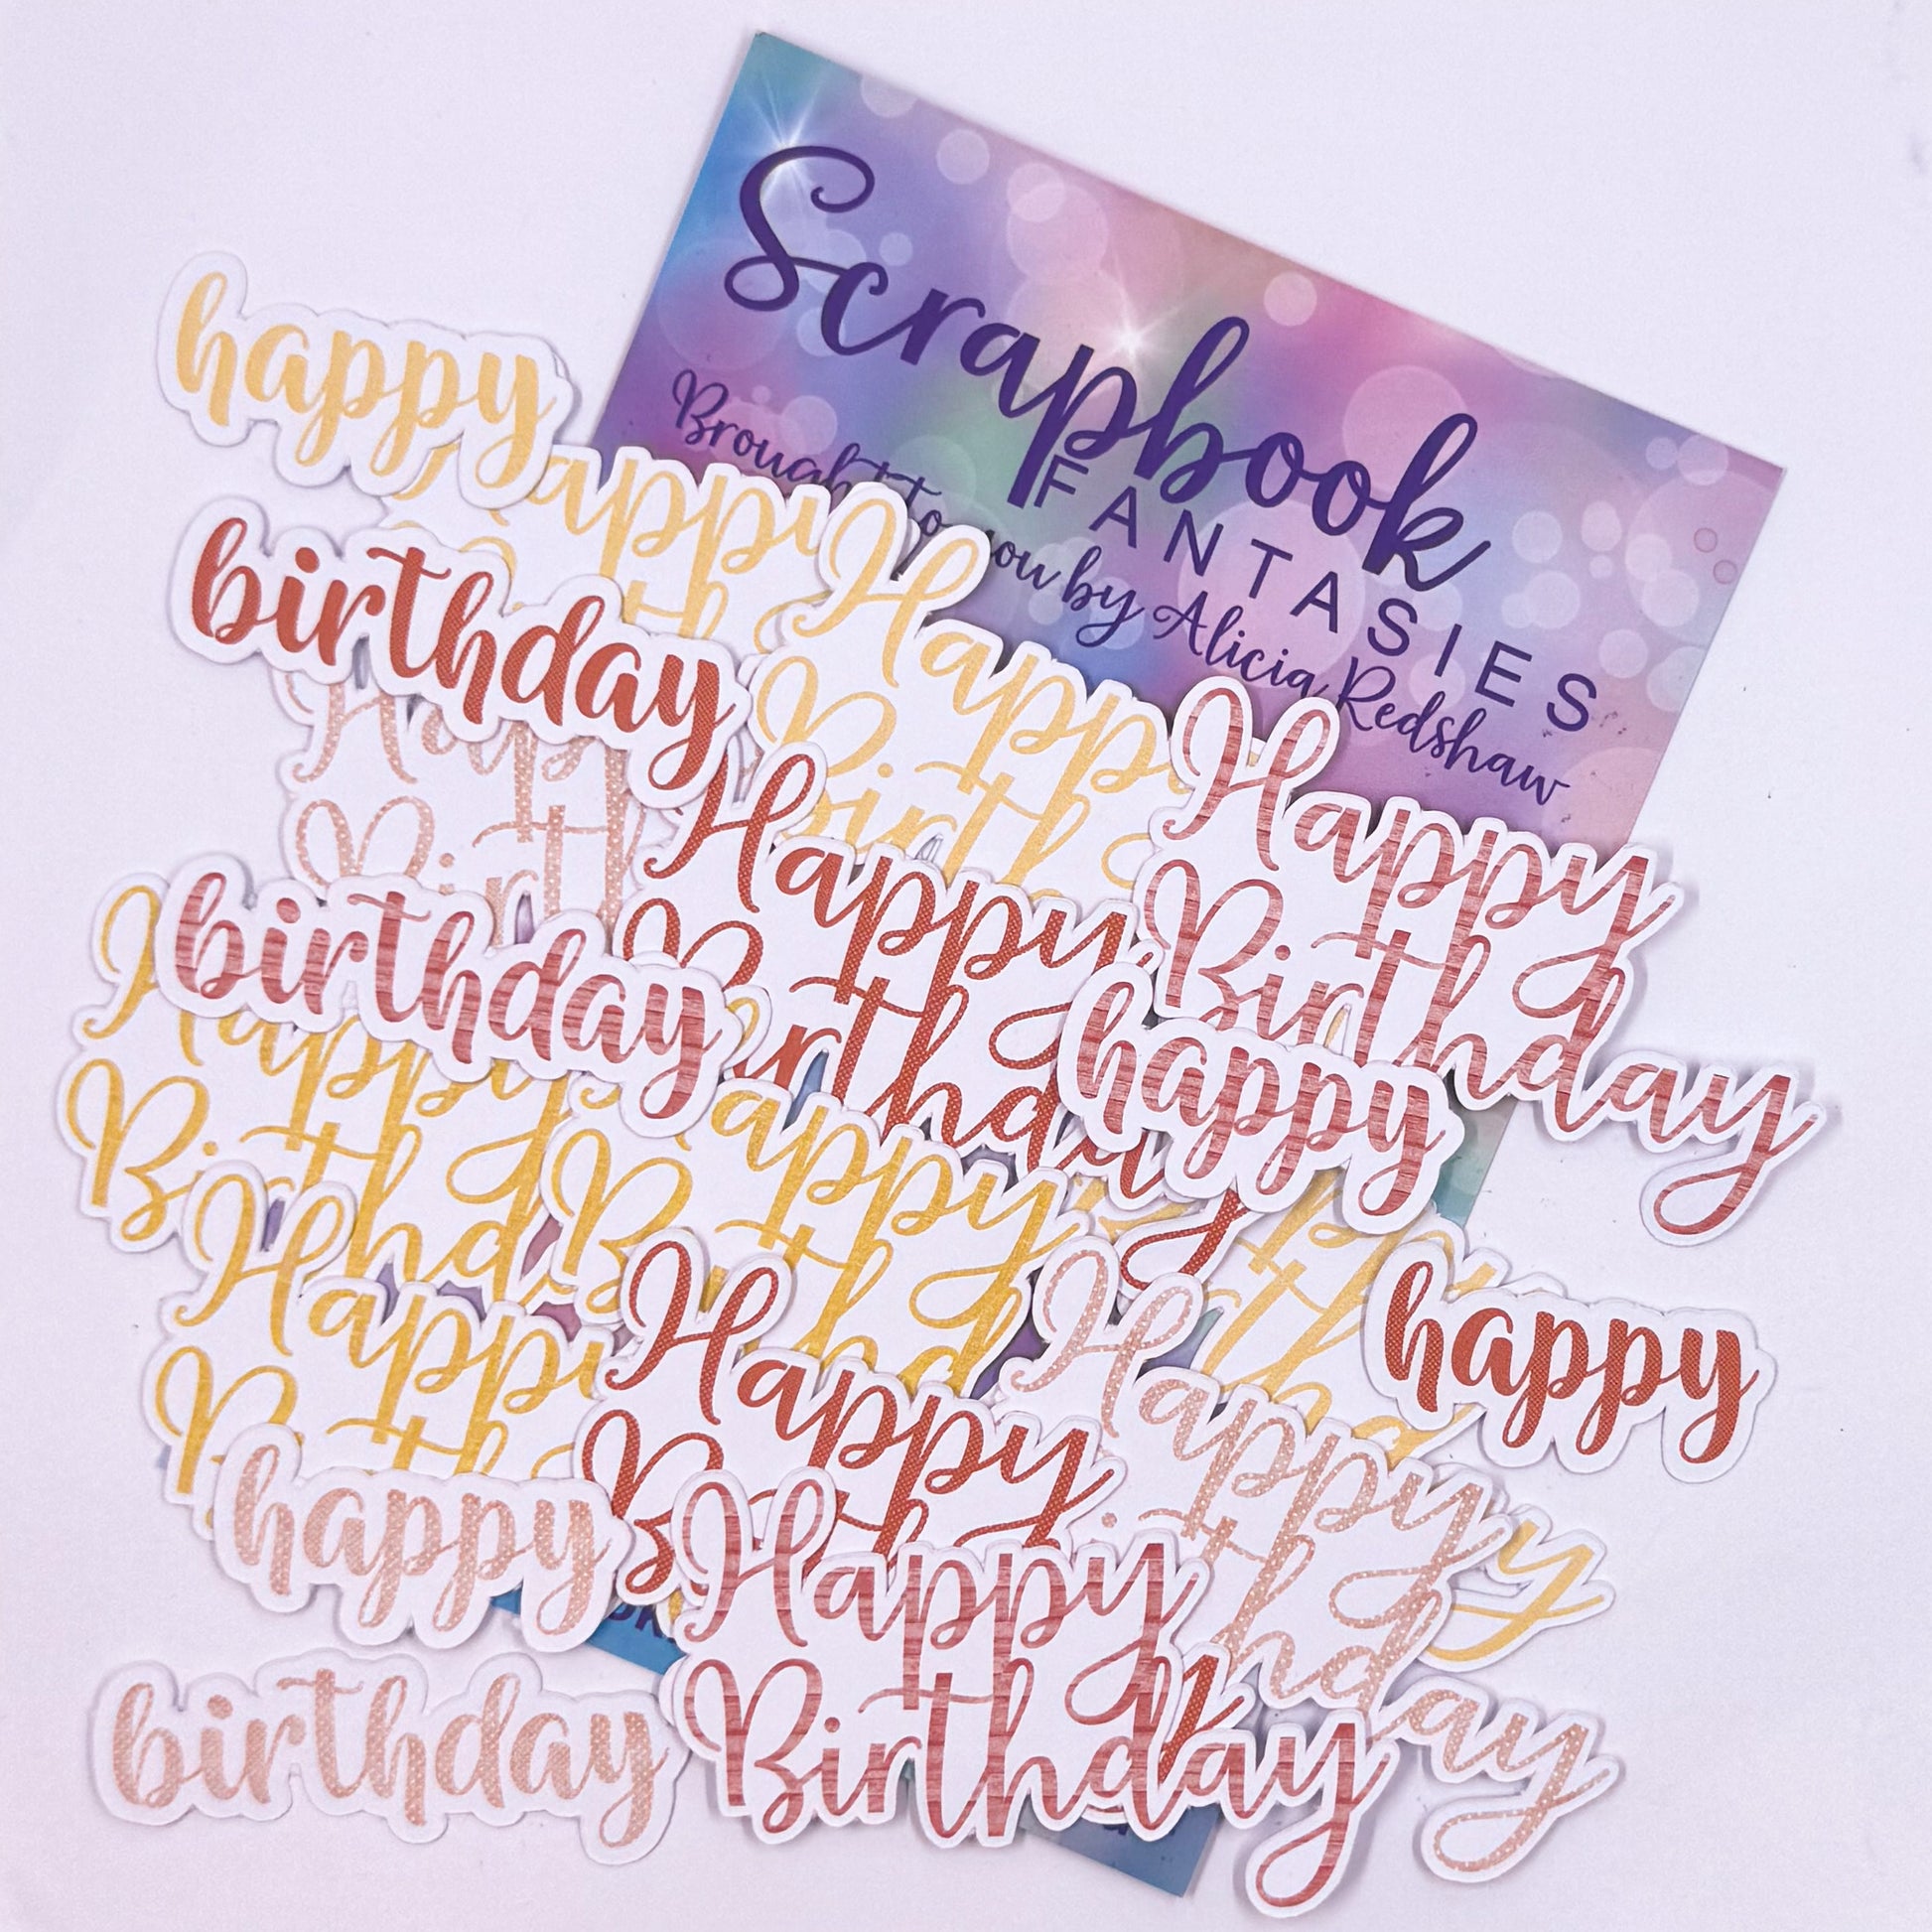 Scrapbook
FANTASIES
Brought to you by Alicia Redshaw
happy
birthday
Happy
Birthday
Happy
birthday
Happy
happy
Happy
Happy
happy
Happy
Happy
happy
Happy
Birthday
birthday